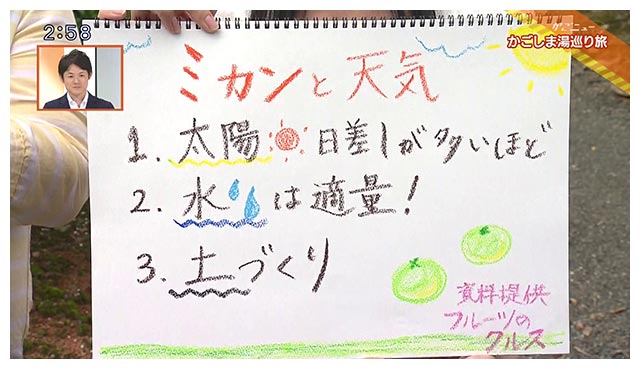 2:58
かごニュー
かごしま湯巡り旅
ミカンと天気
1. 太陽 日差しが多いほど
2. 水 は適量!
3. 土づくり
資料提供
フルーツの
クルス